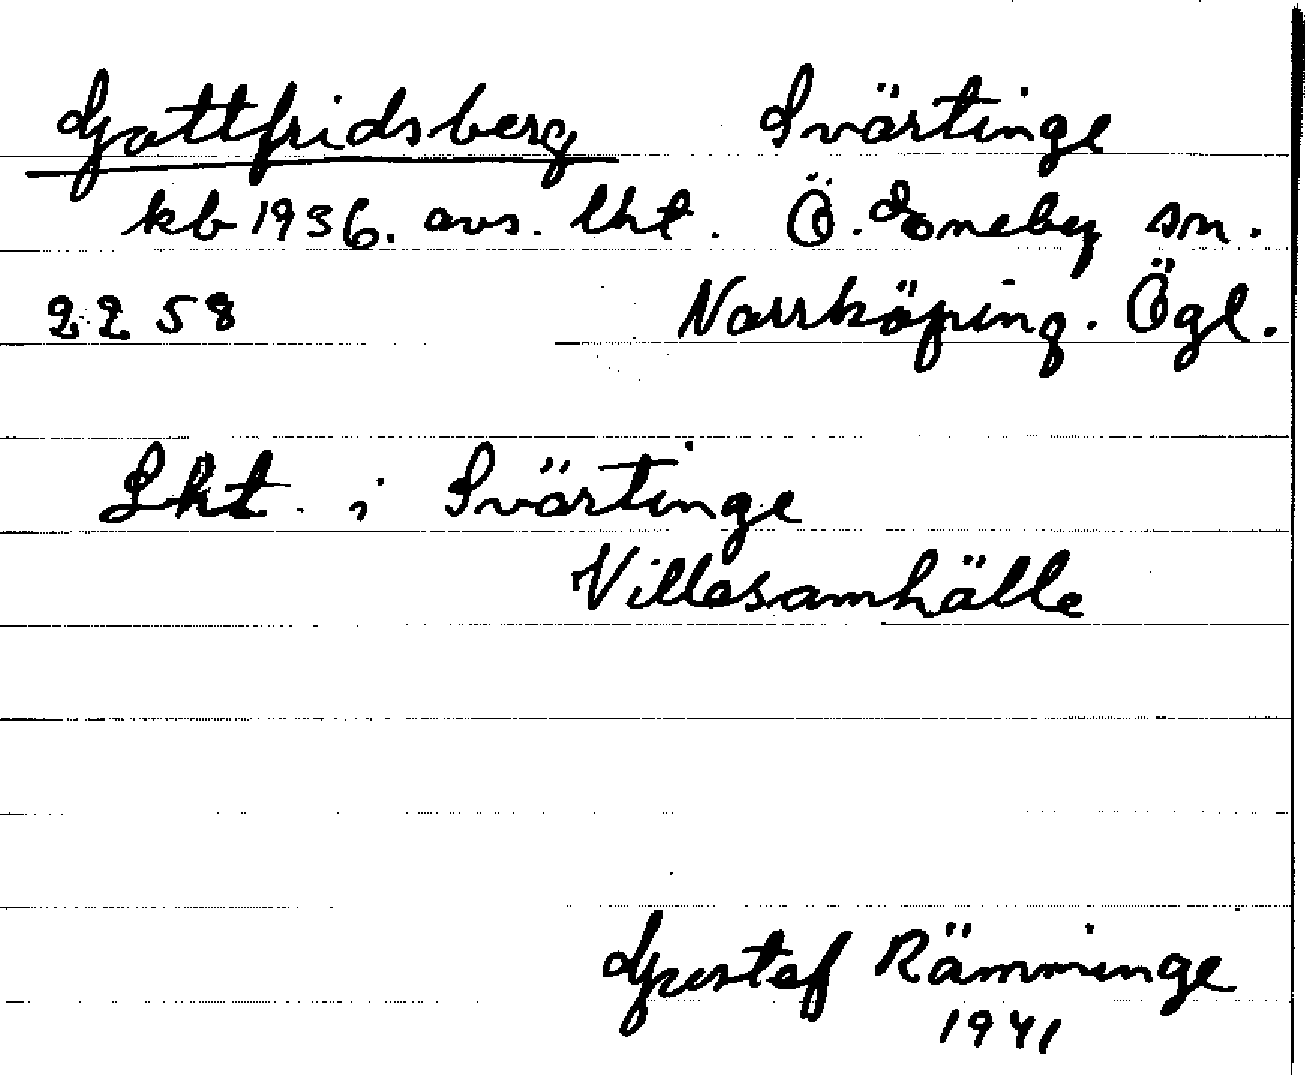 Gottfridsberg Svärtinge
kb 1936. avs. lht. Ö. Eneby sn.
2258 Norrköping. Ögl.
Lht. i Svärtinge
Villasamhälle
Gustaf Rämminge
1941